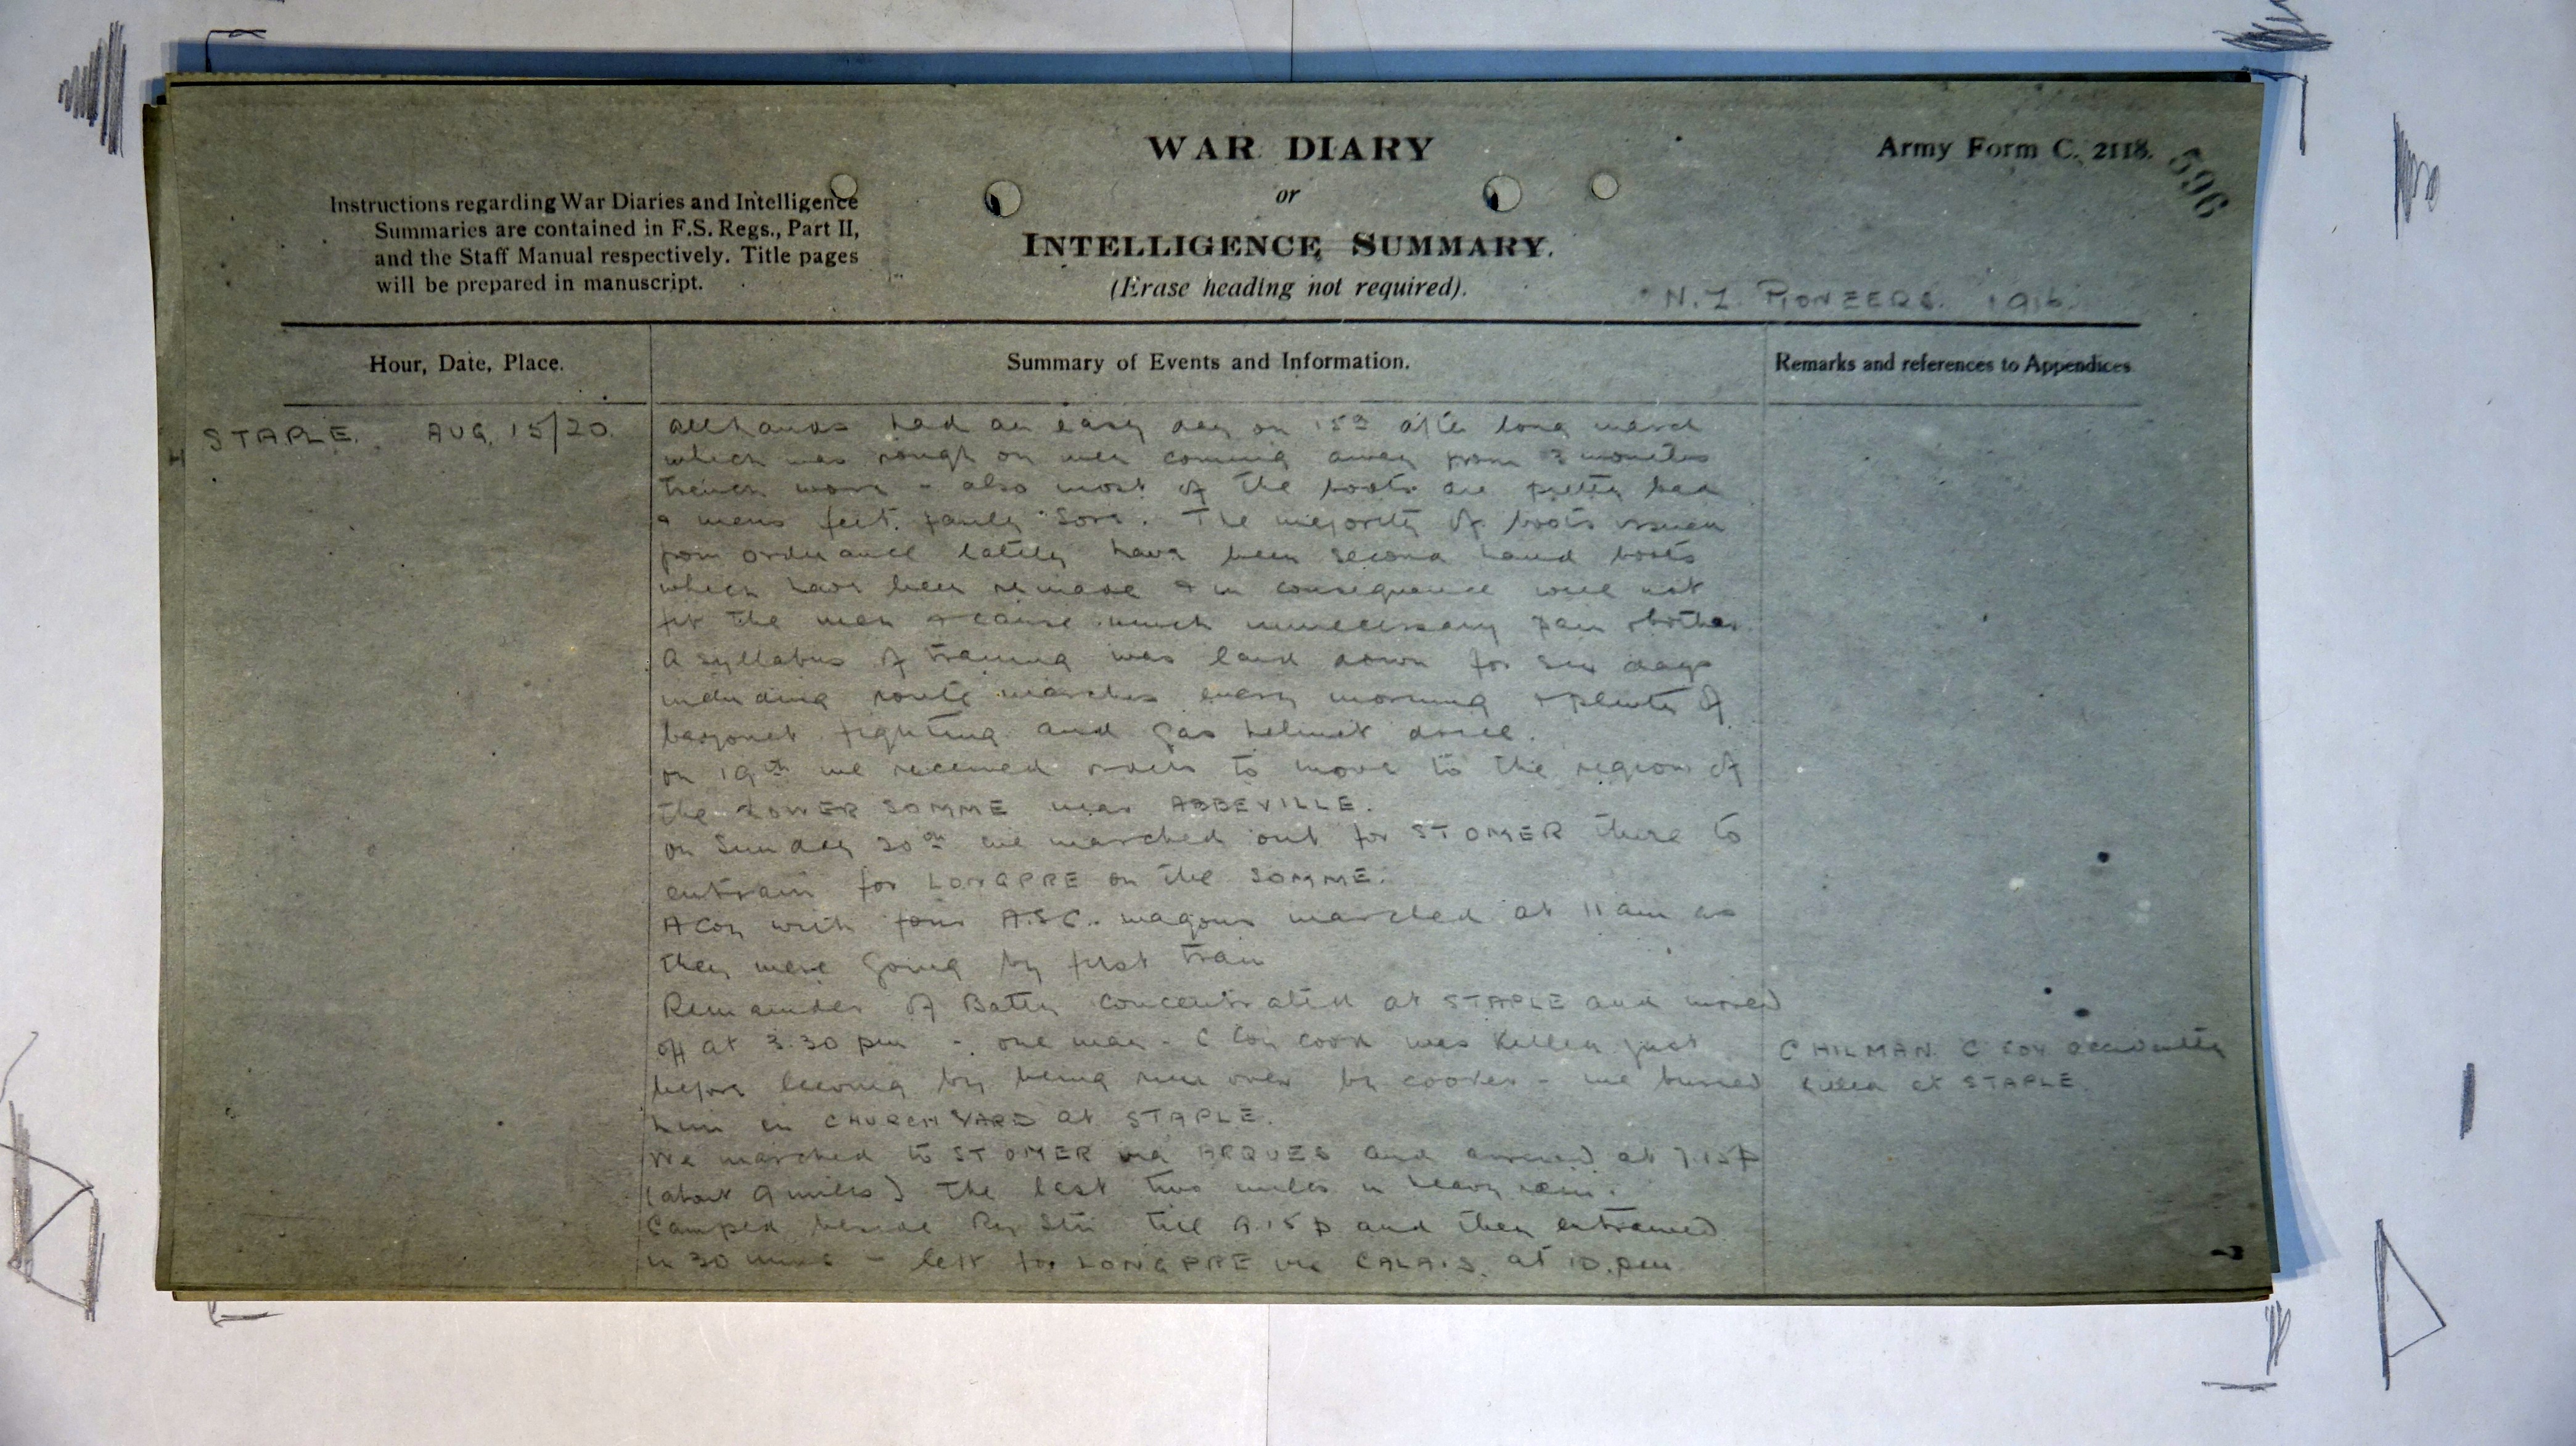 WAR DIARY
or
INTELLIGENCE SUMMARY.
(Erase heading not required).
Army Form C. 2118.
596
Instructions regarding War Diaries and Intelligence
Summaries are contained in F.S. Regs., Part II,
and the Staff Manual respectively. Title pages
will be prepared in manuscript.
N.Z PIONEERS. 1916.
Hour, Date, Place.
Summary of Events and Information.
Remarks and references to Appendices
STAPLE. AUG. 15/20.
All hands had an easy day on 15th after long march
which was rough on men coming away from 3 months
trench work - also most of the boots are pretty bad
& mens feet fairly sore. The majority of boots issued
from ordnance lately have been second hand boots
which have been remade & in consequence will not
fit the men & cause much unnecessary pain & bother
A syllabus of training was laid down for six days
including route marches every morning & plenty of
bayonet fighting and gas helmet drill.
on 19th we received orders to move to the region of
the LOWER SOMME near ABBEVILLE.
on Sunday 20th we marched out for ST OMER there to
entrain for LONGPRE on the SOMME.
A Coy with four A.S.C. wagons marched at 11 am as
they were going by first train
Remainder of Battn concentrated at STAPLE and moved
off at 3.30 pm - one man - C Coy cook was killed just
before leaving by being run over by cooker - we buried
him in CHURCHYARD at STAPLE.
We marched to ST OMER via ARQUES and arrived at 7.15 p
(about 9 miles) The last two miles in heavy rain.
Camped beside Ry Stn till 9.15 p and then entrained
in 30 mins - left for LONGPRE via CALAIS. at 10. pm
C HILMAN C Coy accidently
killed at STAPLE.